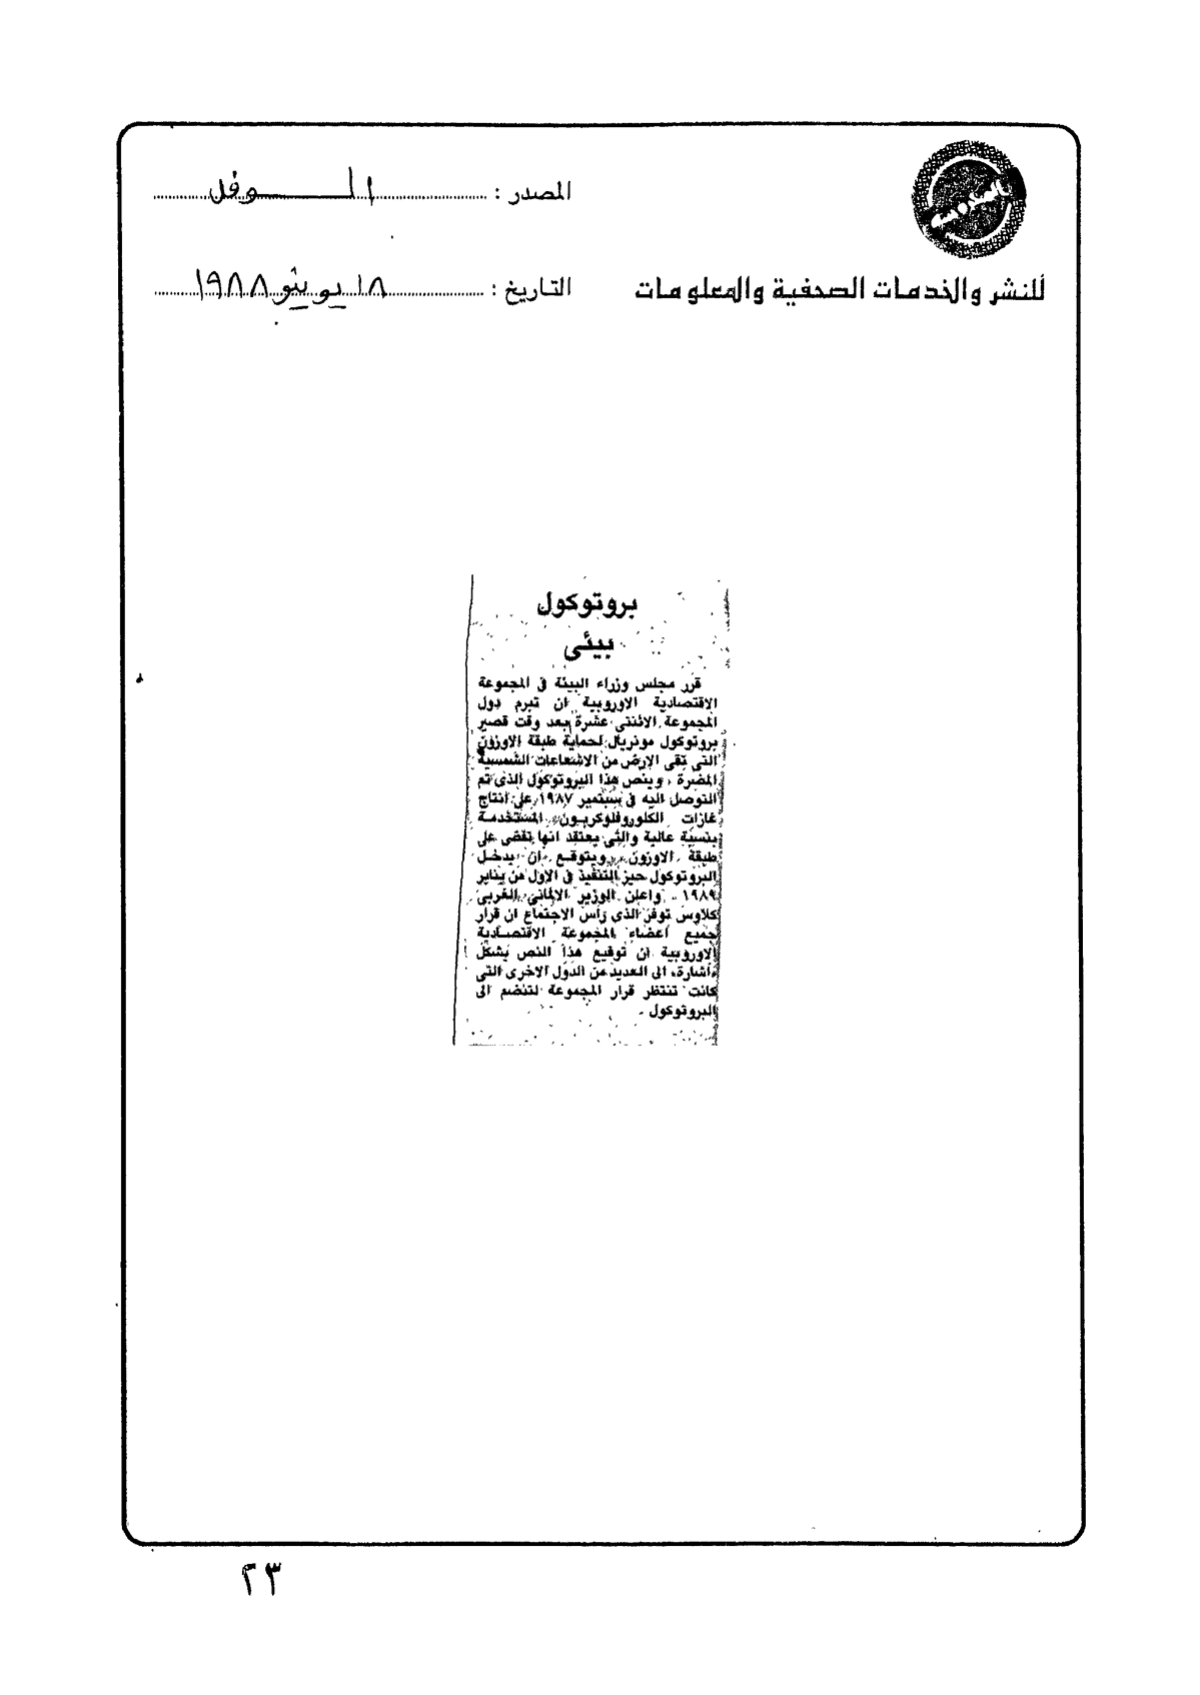 المصدر : الـــوفد
للنشر والخدمات الصحفية والمعلومات
التاريخ : ١٨ يونيو ١٩٨٨
بروتوكول
بيئى
قرر مجلس وزراء البيئة فى المجموعة
الاقتصادية الاوروبية ان تبرم دول
المجموعة الاثنتى عشرة بعد وقت قصير
بروتوكول مونريال لحماية طبقة الاوزون
التى تقى الارض من الاشعاعات الشمسية
المضرة ، وينص هذا البروتوكول الذى تم
التوصل اليه فى سبتمبر ١٩٨٧ على انتاج
غازات الكلوروفلوكربون المستخدمة
بنسبة عالية والتى يعتقد انها تقضى على
طبقة الاوزون ويتوقع ان يدخل
البروتوكول حيز التنفيذ فى الاول من يناير
١٩٨٩ . واعلن الوزير الالمانى الغربى
كلاوس توفر الذى رأس الاجتماع ان قرار
جميع اعضاء المجموعة الاقتصادية
الاوروبية ان توقيع هذا النص يشكل
«اشارة» الى العديد من الدول الاخرى التى
كانت تنتظر قرار المجموعة لتنضم الى
البروتوكول .
٢٣